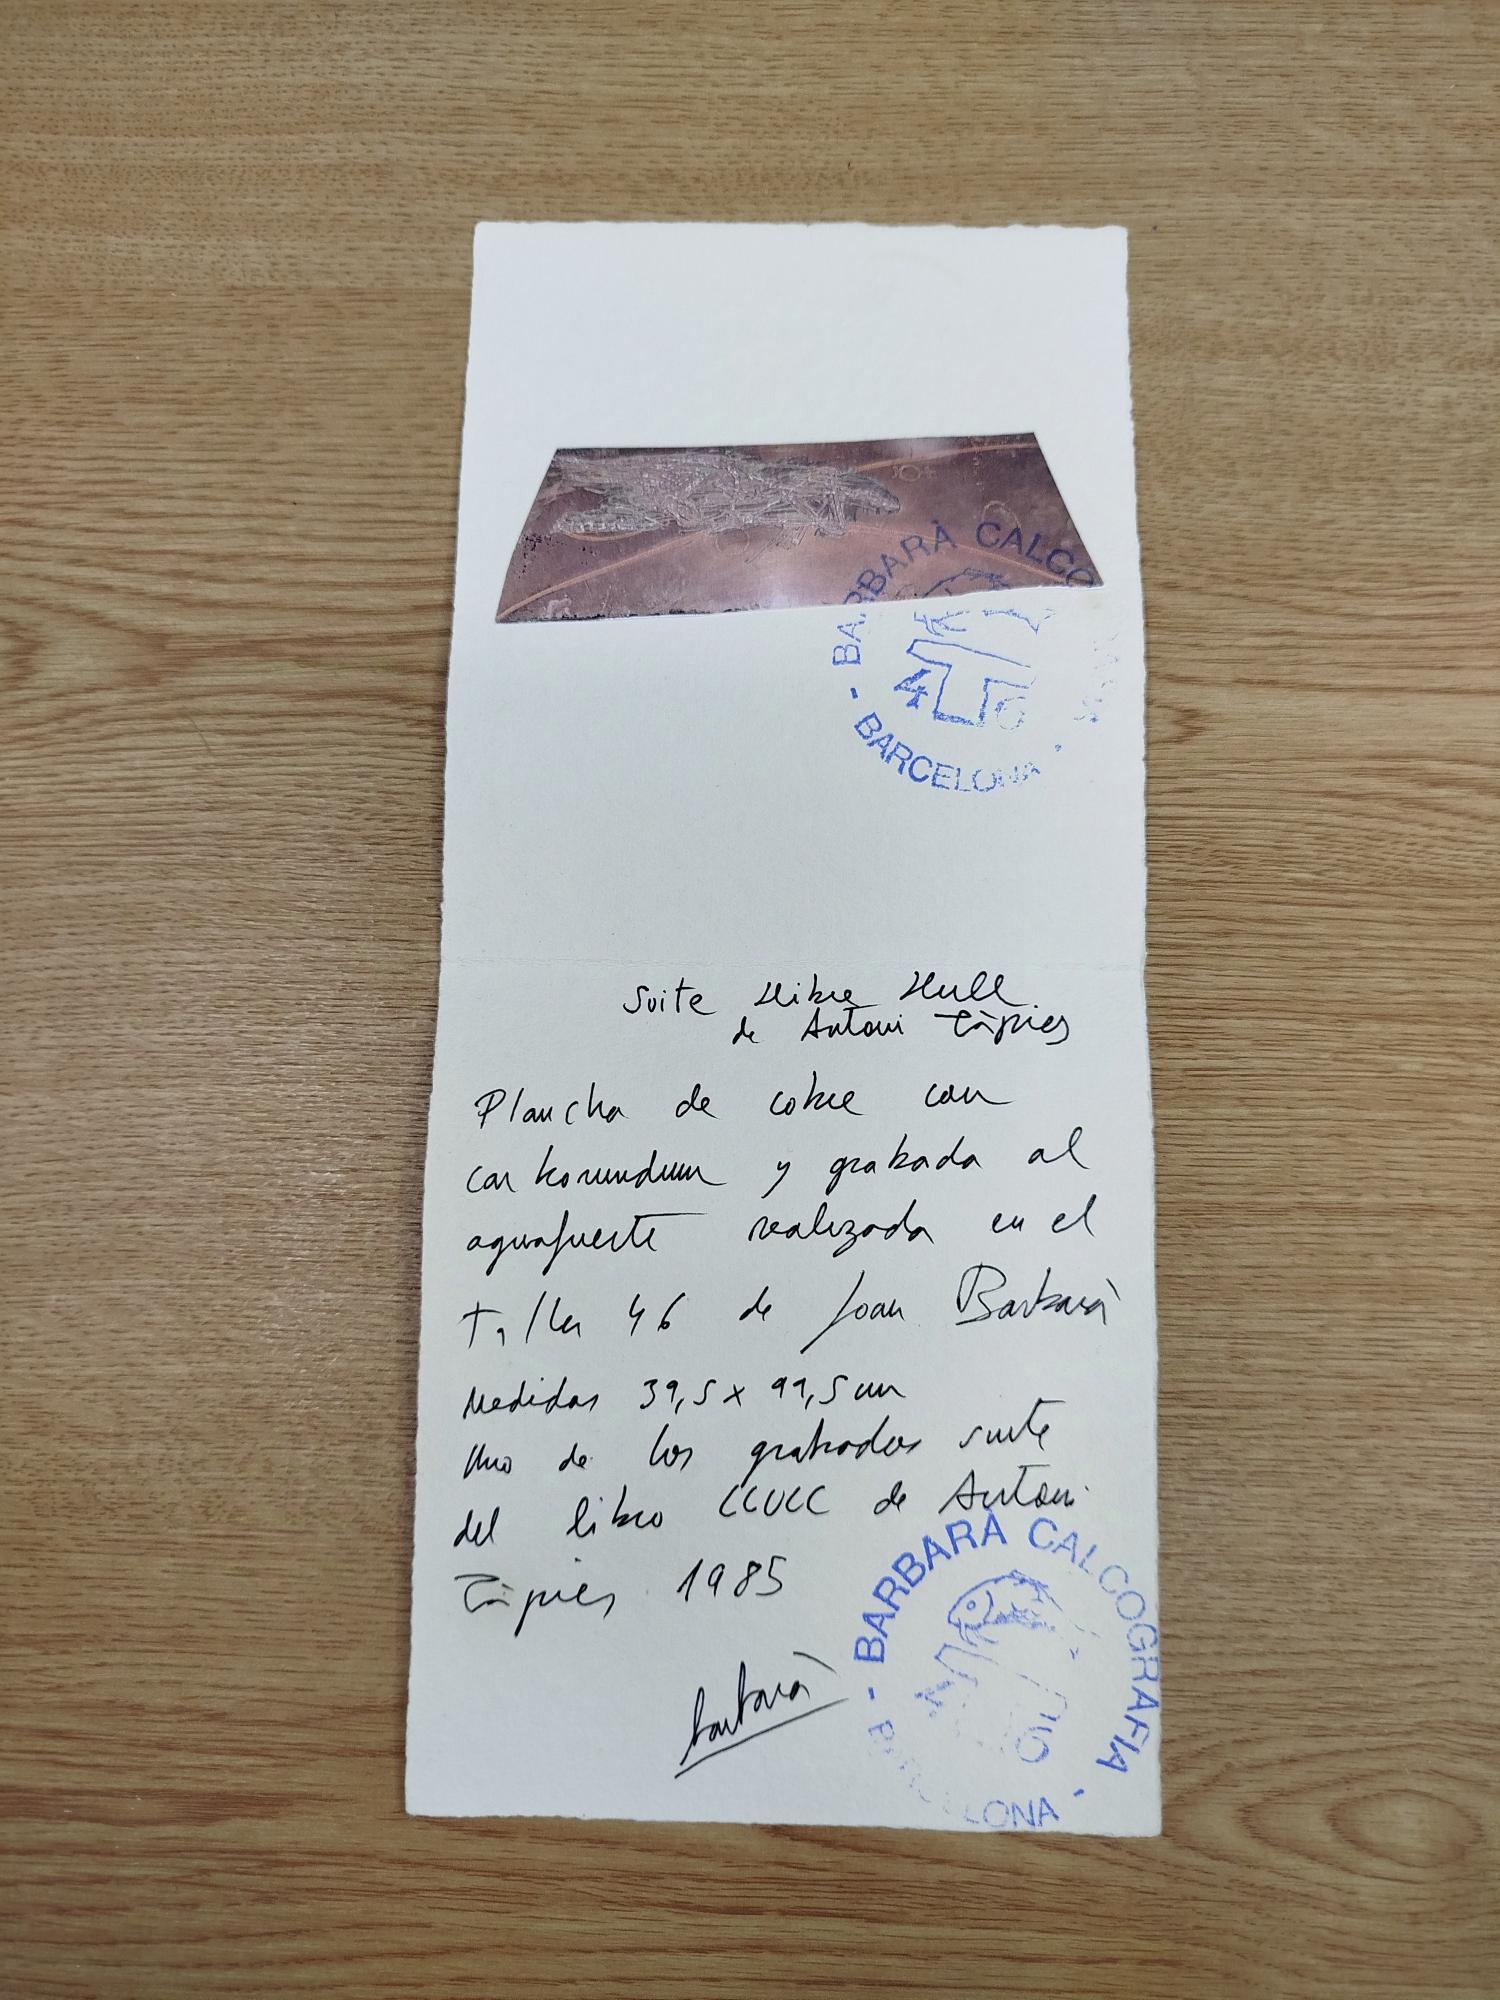 BARBARÀ CALCO
46
- BARCELONA -
Suite Llibre Llull
de Antoni Tàpies
Plancha de cobre con
carborundum y grabada al
aguafuerte realizada en el
Taller 46 de Joan Barbarà
Medidas 39,5 x 99,5 cm
Uno de los grabados suite
del libro LLULL de Antoni
Tàpies 1985
Barbarà
- BARBARÀ CALCOGRAFIA -
BARCELONA